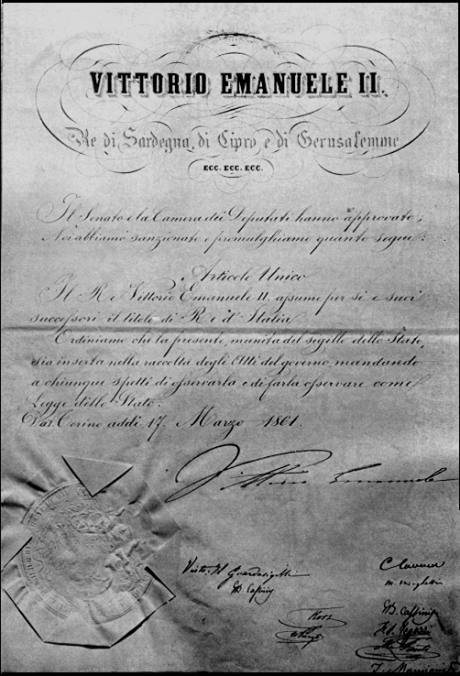 VITTORIO EMANUELE II.
Re di Sardegna, di Cipro, e di Gerusalemme
ECC. ECC. ECC.
Il Senato e la Camera dei Deputati hanno approvato;
Noi abbiamo sanzionato e promulghiamo quanto segue:
Articolo Unico
Il Re Vittorio Emanuele II assume per sé e suoi
successori il titolo di Re d'Italia
Ordiniamo che la presente, munita del sigillo dello Stato,
sia inserta nella raccolta degli Atti del governo, mandando
a chiunque spetti di osservarla e di farla osservare come
Legge dello Stato.
Dat. Torino addì 17. Marzo 1861.
Vittorio Emanuele
Visto Il Guardasigilli
G. B. Cassinis
C. Cavour
M. Minghetti
G. B. Cassinis